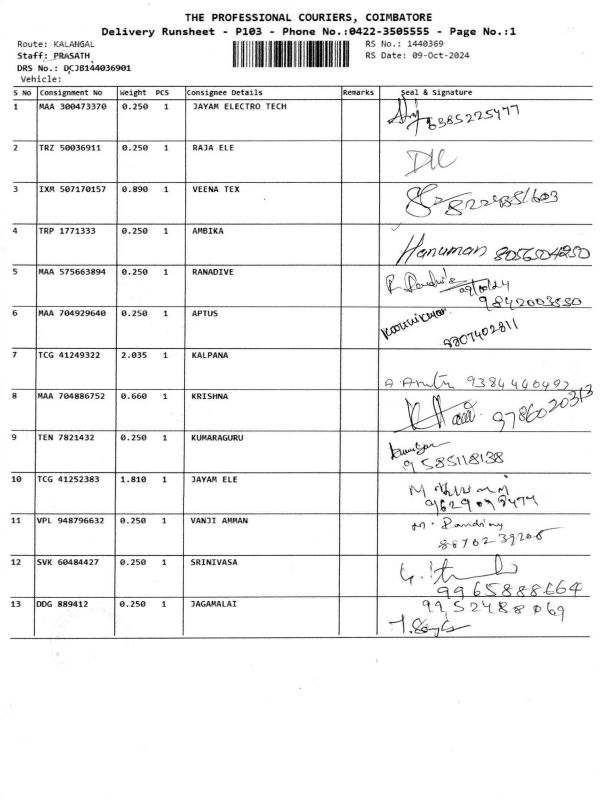 THE PROFESSIONAL COURIERS, COIMBATORE
Delivery Runsheet - P103 - Phone No.:0422-3505555 - Page No.:1
Route: KALANGAL RS No.: 1440369
Staff: PRASATH RS Date: 09-Oct-2024
DRS No.: DCJB144036901
Vehicle:
S No Consignment No Weight PCS Consignee Details Remarks Seal & Signature
1 MAA 300473370 0.250 1 JAYAM ELECTRO TECH 6385225477
2 TRZ 50036911 0.250 1 RAJA ELE
3 IXM 507170157 0.890 1 VEENA TEX
4 TRP 1771333 0.250 1 AMBIKA Hanuman 8056504250
5 MAA 575663894 0.250 1 RANADIVE 09/10/24
9842003550
6 MAA 704929640 0.250 1 APTUS
9807402811
7 TCG 41249322 2.035 1 KALPANA 9384440492
8 MAA 704886752 0.660 1 KRISHNA
9 TEN 7821432 0.250 1 KUMARAGURU
9585118138
10 TCG 41252383 1.810 1 JAYAM ELE
11 VPL 948796632 0.250 1 VANJI AMMAN
12 SVK 60484427 0.250 1 SRINIVASA
9965888664
13 DDG 889412 0.250 1 JAGAMALAI 9952488069